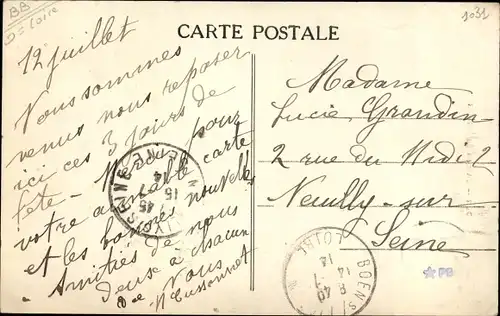 BB
D= Loire
1031
CARTE POSTALE
12 juillet
Nous sommes
venus nous reposer
ici ces 3 jours de
fête - Merci pour
votre aimable carte
et les bonnes nouvelles
Amitiés de nous
deux à chacun
de Vous
Madame
Lucie Grandin
2 rue du Midi 2
Neuilly-sur-
Seine
SEINE
15
BOEN
LOIRE
8 40
14
PB